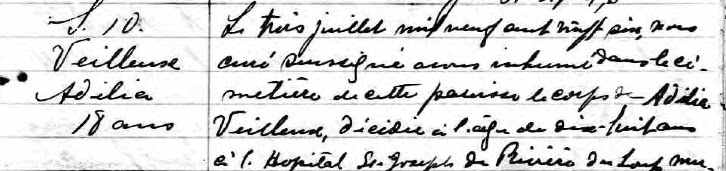 S. 10.
Veilleuse
Adélia
18 ans
Le trois juillet mil neuf cent vingt six, nous
curé soussigné avons inhumé dans le ci-
metière de cette paroisse le corps de Adélia
Veilleux, décédée à l'âge de dix-huit ans
à l'Hopital St-Joseph de Rivière du Loup